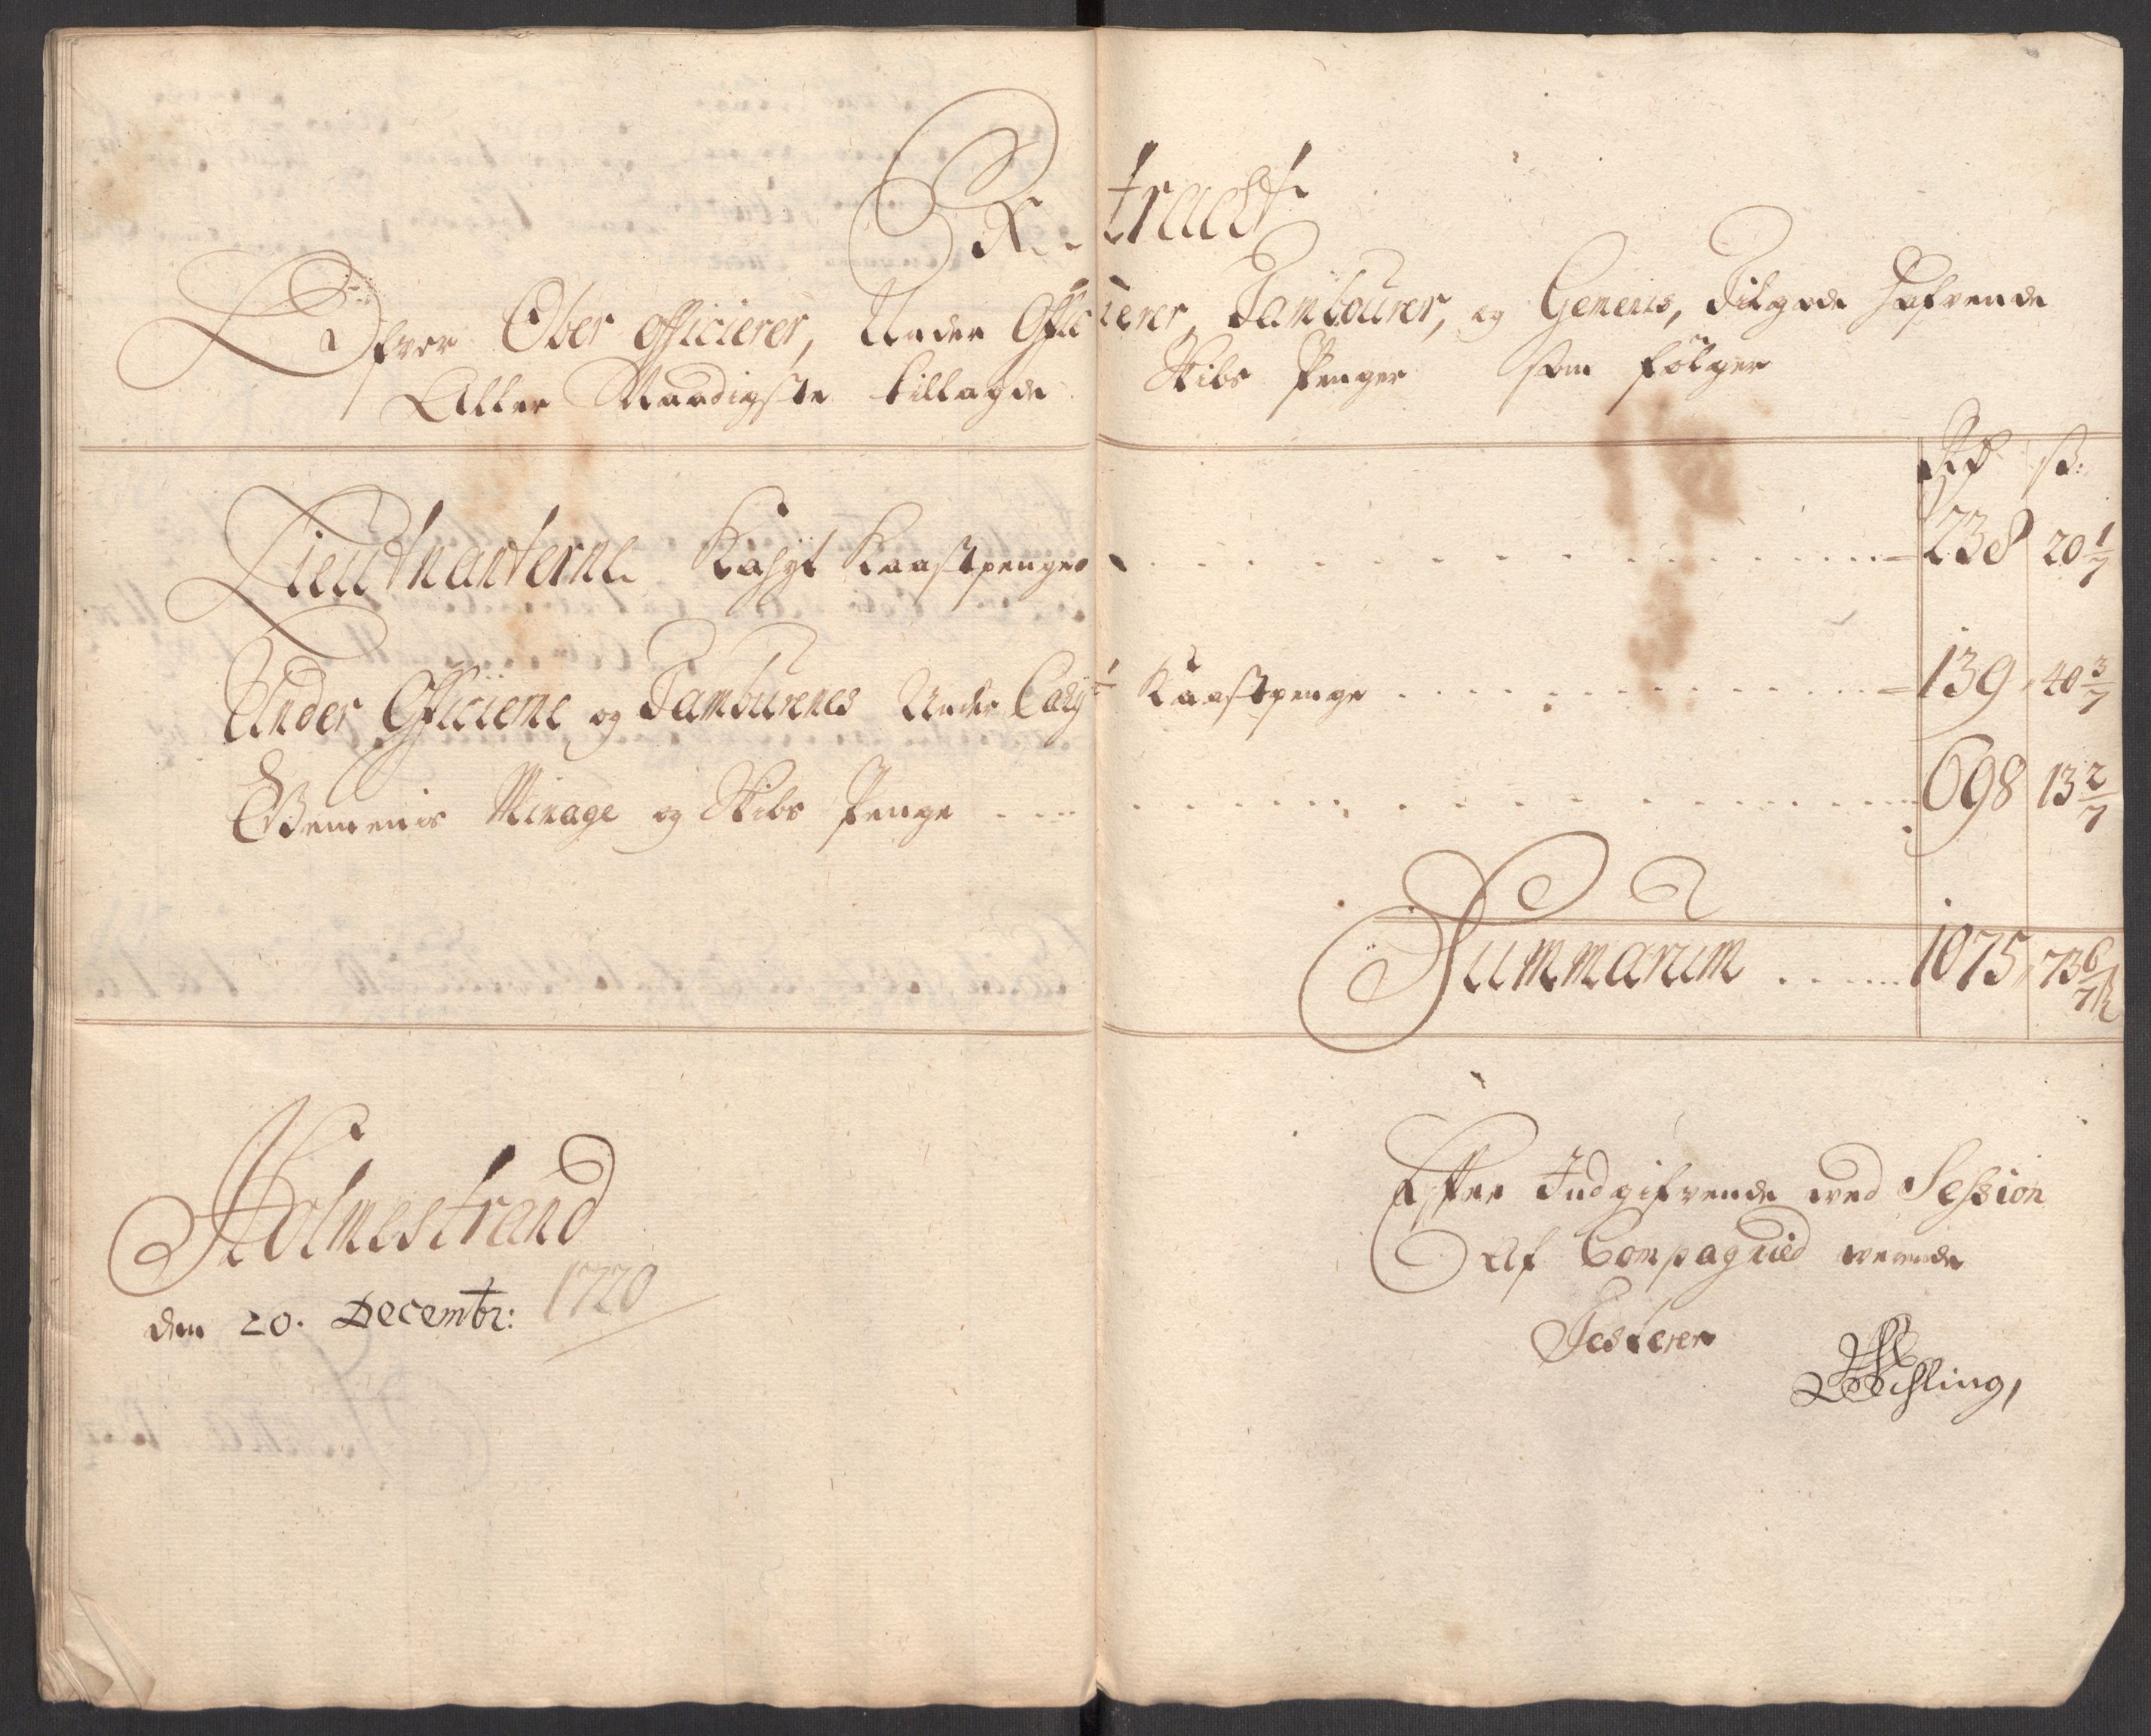 Extract
Ofver Ober officierer, Under Officierer, Tambourer, og Gemenis, Tilgode Hafvende
Aller Naadigste tillagde Skibs Penger som følger
Rd ß:
Lieutnanterne Kahyt Kaastpenger 238 20 1/7
Under Officierne og Tamburenes Under Cahyt Kaastpenge 139 40 3/7
Gemenis Minage og Skibs Penge 698 13 2/7
Summarum 1075 73 6/7 ß
Holmestrand
den 20. Decembr: 1720
Efter Indgifvende ved Session
Af Compagnied
Testerer